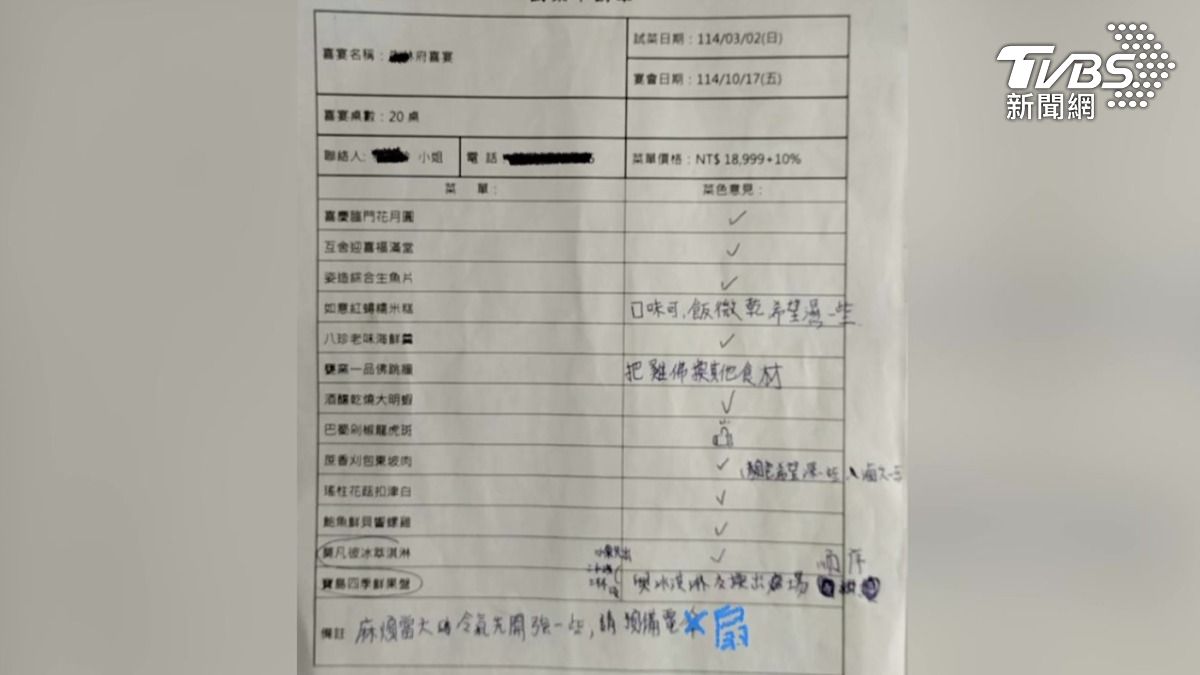 TVBS
新聞網
喜宴名稱: 府喜宴
試菜日期:114/03/02(日)
宴會日期:114/10/17(五)
喜宴桌數:20 桌
聯絡人: 小姐
電 話
菜單價格:NT$ 18,999+10%
菜 單:
菜色意見:
喜慶臨門花月圓
互舍迎喜福滿堂
姿造綜合生魚片
如意紅蟳糯米糕
口味可,飯微乾希望濕一些
八珍老味海鮮羹
甕窯一品佛跳牆
把雞佛換其他食材
酒釀乾燒大明蝦
巴蜀剁椒龍虎斑
蔗香刈包東坡肉
顏色希望深一些、滷久一
瑤柱花菇扣津白
鮑魚鮮貝響螺雞
莫凡彼冰草淇淋
順序
寶島四季鮮果盤
與冰淇淋交換出場
備註
麻煩當天的冷氣先開強一些,請預備電 扇